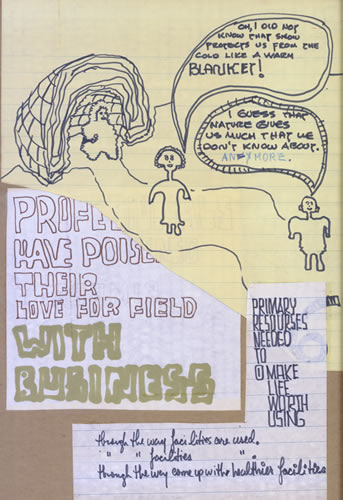 "OH, I DID NOT
KNOW THAT SNOW
PROTECTS US FROM THE
COLD LIKE A WARM
BLANKET!
I GUESS THAT
NATURE GIVES
US MUCH THAT WE
DON'T KNOW ABOUT.
ANYMORE.
PROFE
HAVE POISE
THEIR
LOVE FOR FIELD
WITH
BUSINESS
PRIMARY
RESOURSES
NEEDED
TO
MAKE
LIFE
WORTH
USING
through the way facilities are used.
" " " facilities " .
through the way come up with healthier facilities